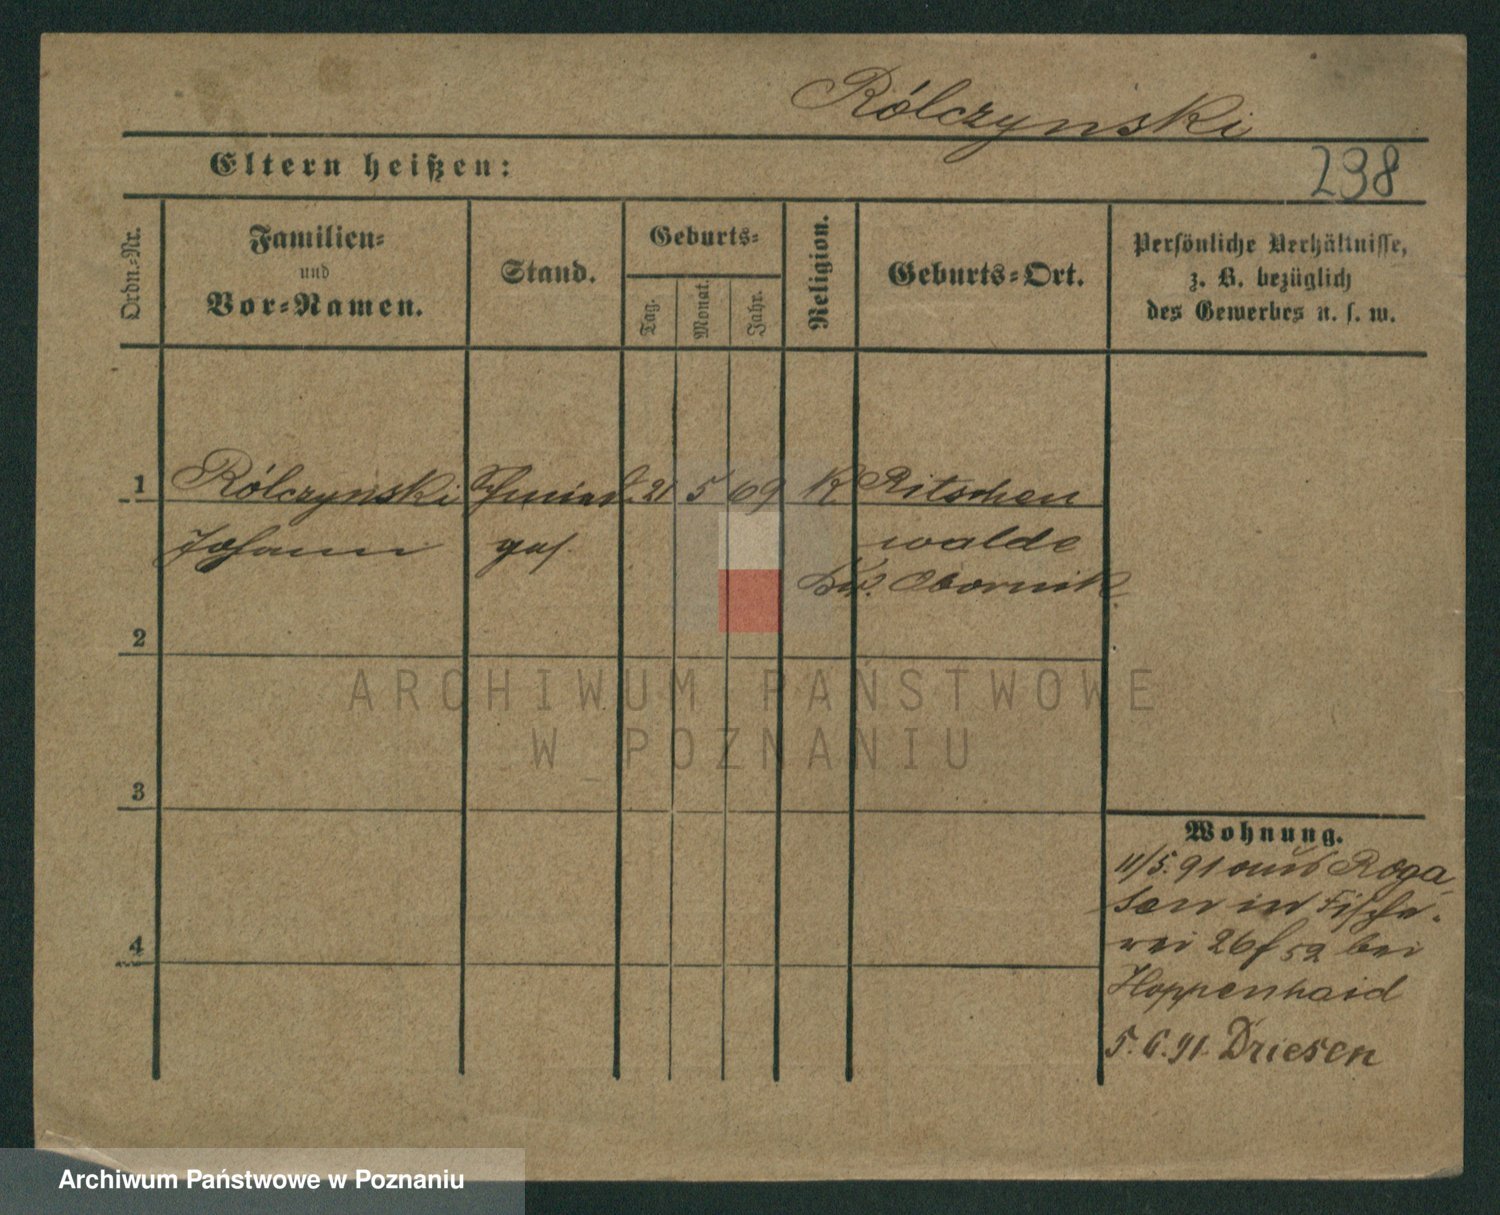 Rólczynski
Eltern heißen:
298
Ordn.-Nr.
Familien-
und
Vor-Namen.
Stand.
Geburts-
Tag.
Monat.
Jahr.
Religion.
Geburts-Ort.
Persönliche Verhältnisse,
z. B. bezüglich
des Gewerbes u. s. w.
1 Rólczynski Schmied. 21 5 69 K Ritschen
Johann ges. walde
Kr. Obornik
2
ARCHIWUM PAŃSTWOWE
W POZNANIU
3
Wohnung.
11/5. 91 aus Roga
sen in Fische-
rei 26 f 52 bei
4
Hoppenhaid
5. 6. 91. Driesen
Archiwum Państwowe w Poznaniu